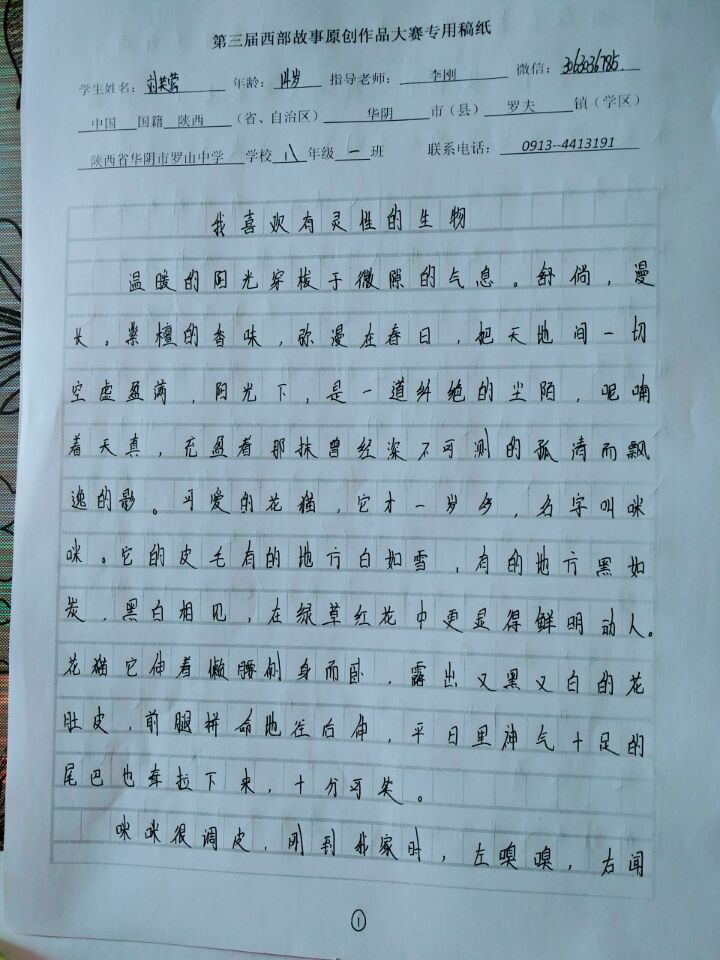 第三届西部故事原创作品大赛专用稿纸
学生姓名：刘芙蓉 年龄：14岁 指导老师：李刚 微信：3063036785.
中国 国籍 陕西 （省、自治区） 华阴 市（县） 罗夫 镇（学区）
陕西省华阴市罗山中学 学校 八 年级 一 班 联系电话：0913--4413191
我喜欢有灵性的生物
温暖的阳光穿梭于微隙的气息。舒倘，漫
长。紫檀的香味，弥漫在春日，把天地间一切
空虚盈满，阳光下，是一道纤绝的尘陌，呢喃
着天真，充盈着那抹曾经深不可测的孤清而飘
逸的影。可爱的花猫，它才一岁多，名字叫咪
咪。它的皮毛有的地方白如雪，有的地方黑如
炭，黑白相见，在绿草红花中更显得鲜明动人。
花猫它伸着懒腰侧身而卧，露出又黑又白的花
肚皮，前腿拼命地往后伸，平日里神气十足的
尾巴也牵拉下来，十分可笑。
咪咪很调皮，刚到我家时，左嗅嗅，右闻
1